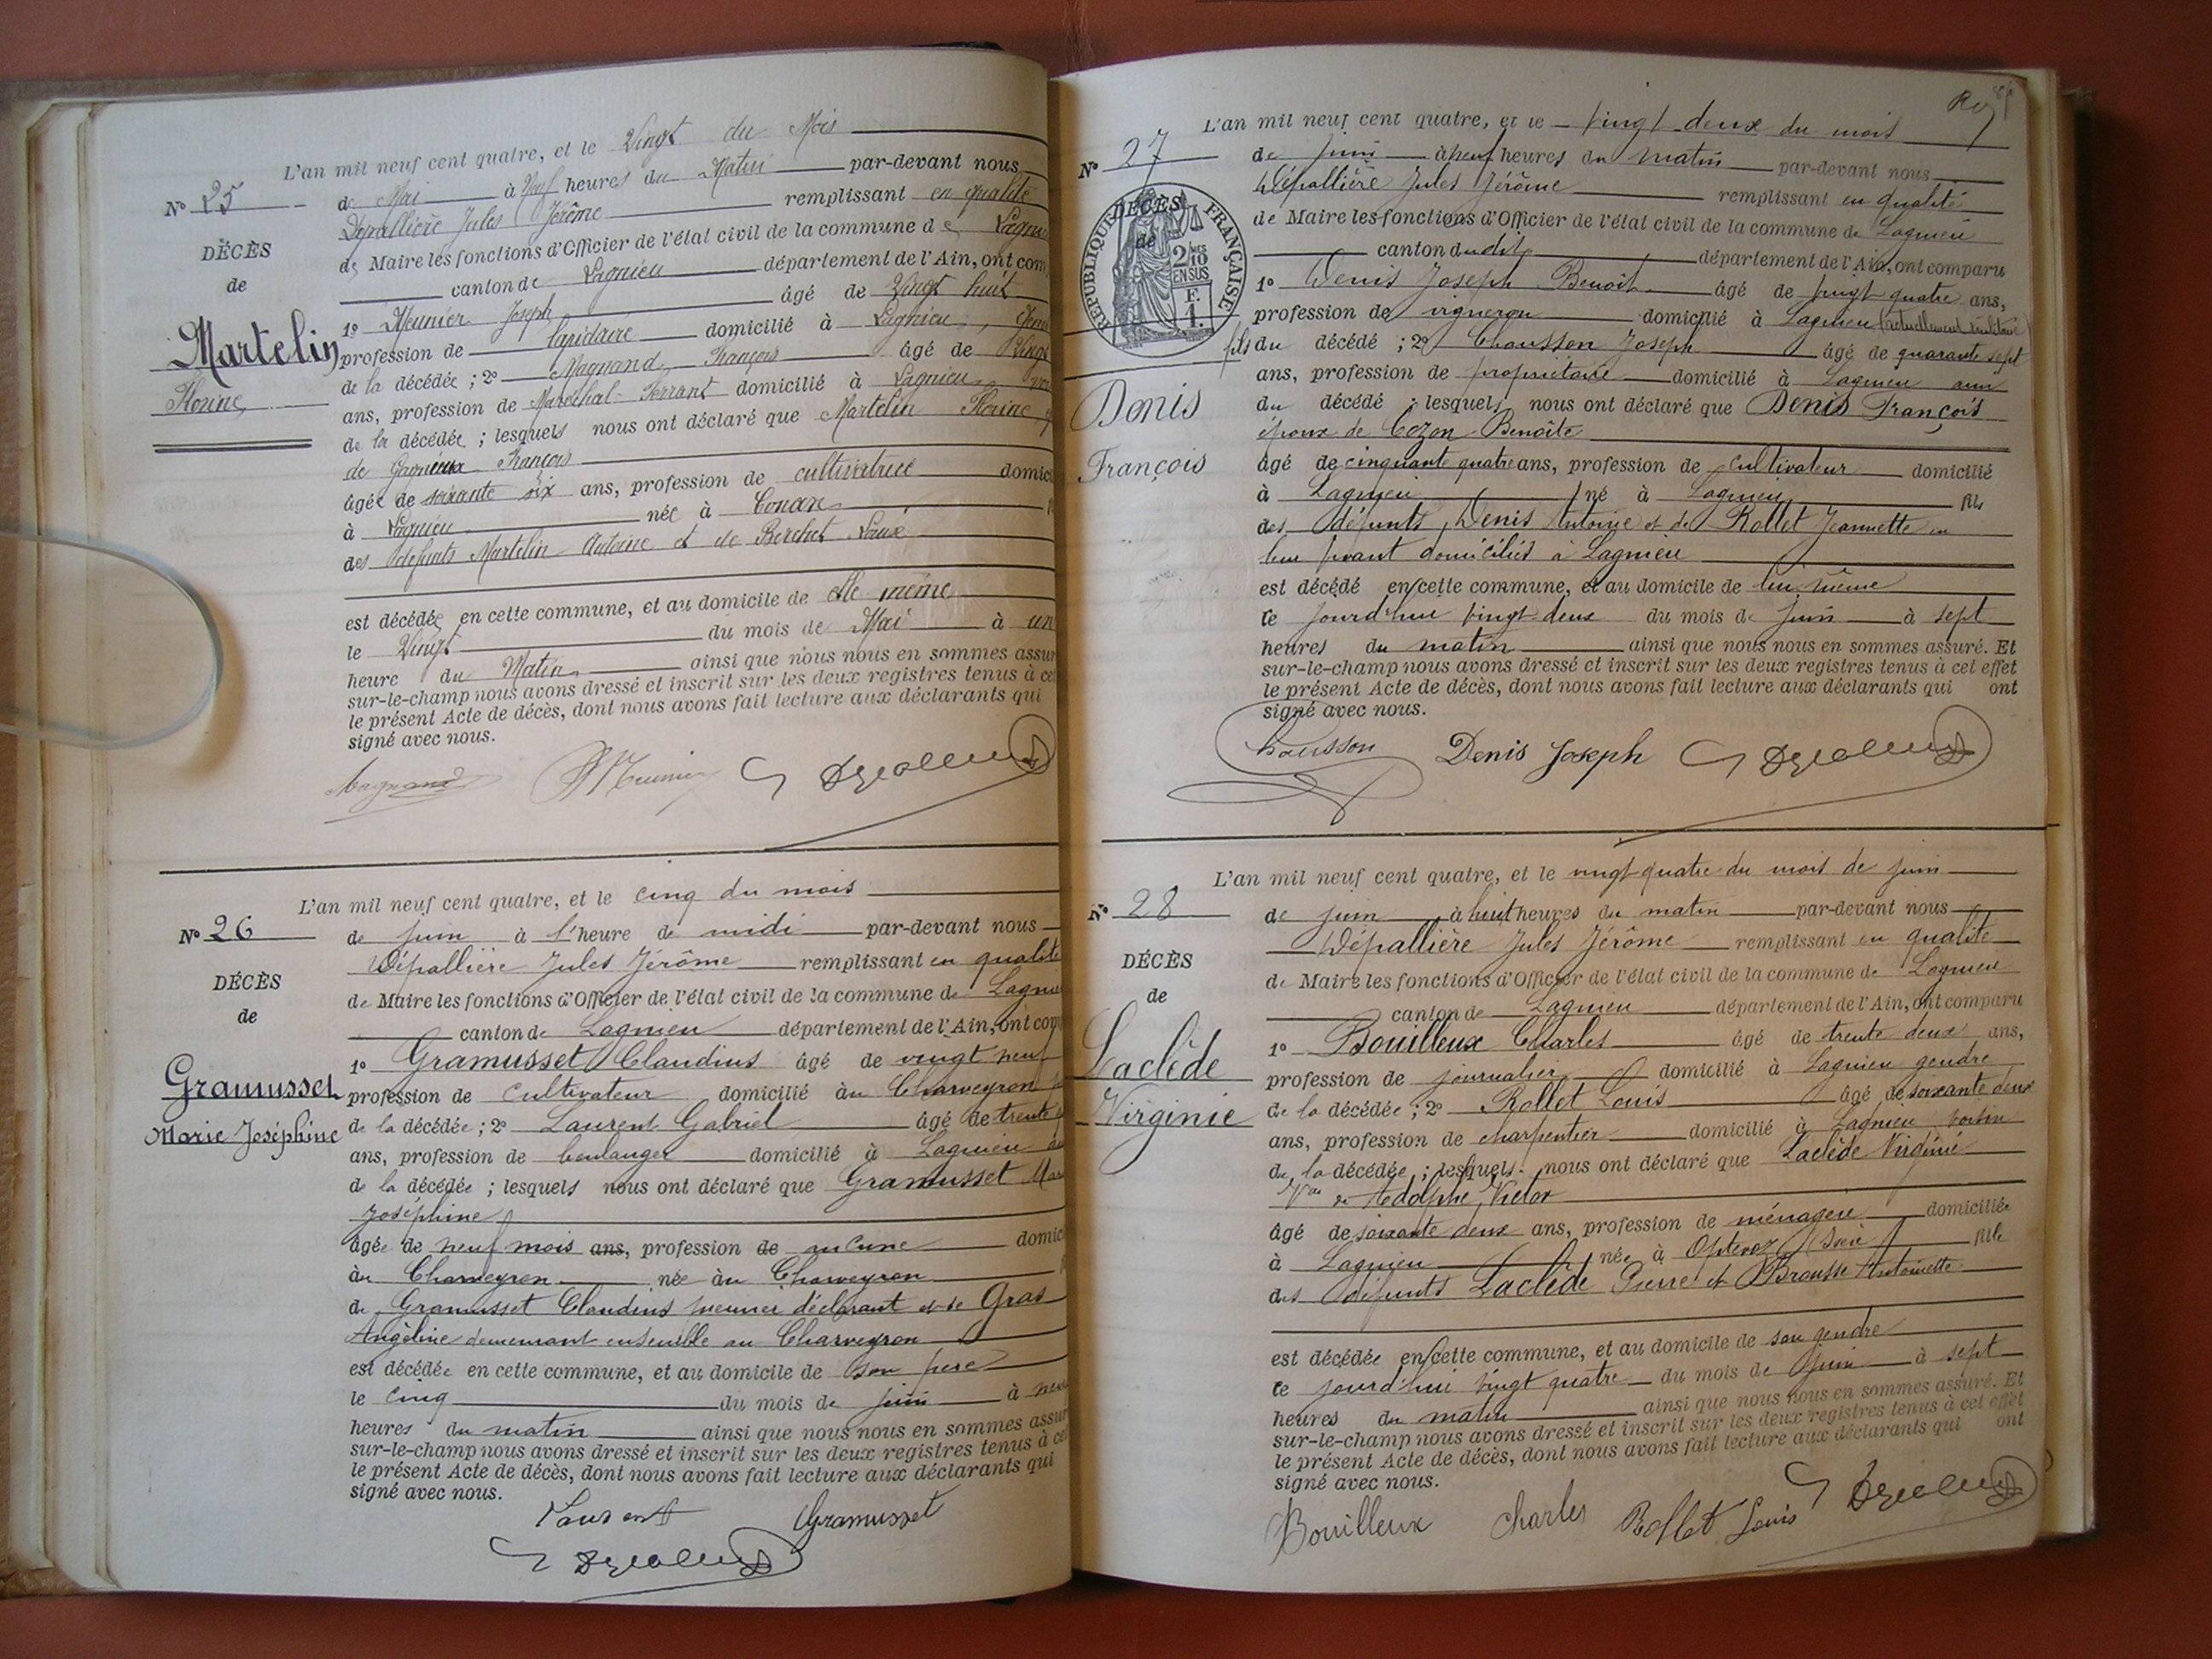 L'an mil neuf cent quatre, et le Vingt du Mois
Nº 25
de Mai à Neuf heures du Matin par-devant nous
Dépallière Jules Jérôme remplissant en qualité
de Maire les fonctions d'Officier de l'état civil de la commune de Lagnieu
canton de Lagnieu département de l'Ain, ont com
DÉCÈS
de
Martelin
Florine
1º Meunier Joseph âgé de Vingt huit
profession de lapidaire domicilié à Lagnieu,
de la décédée ; 2º Magnand François âgé de Vingt
ans, profession de Maréchal-Ferrant domicilié à Lagnieu
de la décédée ; lesquels nous ont déclaré que Martelin Florine
de François
âgée de soixante six ans, profession de cultivatrice domici
à Lagnieu née à Conan
des défunts Martelin Antoine et de Berchet
est décédée en cette commune, et au domicile de elle même
le Vingt du mois de Mai à un
heure du Matin ainsi que nous nous en sommes assur
sur-le-champ nous avons dressé et inscrit sur les deux registres tenus à ce
le présent Acte de décès, dont nous avons fait lecture aux déclarants qui
signé avec nous.
Magnand Meunier
L'an mil neuf cent quatre, et le cinq du mois
Nº 26
de juin à l'heure de midi par-devant nous
Dépallière Jules Jérôme remplissant en qualité
de Maire les fonctions d'Officier de l'état civil de la commune de Lagnieu
canton de Lagnieu département de l'Ain, ont com
DÉCÈS
de
Gramusset
Marie Joséphine
1º Gramusset Claudius âgé de vingt neuf
profession de cultivateur domicilié au Charveyron
de la décédée ; 2º Laurent Gabriel âgé de trente
ans, profession de boulanger domicilié à Lagnieu
de la décédée ; lesquels nous ont déclaré que Gramusset Mar
Joséphine
âgée de neuf mois ans, profession de aucune domici
au Charveyron née au Charveyron
de Gramusset Claudius premier déclarant et de Gras
Angéline demeurant ensemble au Charveyron
est décédée en cette commune, et au domicile de son père
le cinq du mois de juin à neuf
heures du matin ainsi que nous nous en sommes assur
sur-le-champ nous avons dressé et inscrit sur les deux registres tenus à ce
le présent Acte de décès, dont nous avons fait lecture aux déclarants qui
signé avec nous.
Laurent Gramusset
L'an mil neuf cent quatre, et le vingt-deux du mois
Nº 27
de juin à neuf heures du matin par-devant nous
Dépallière Jules Jérôme remplissant en qualité
de Maire les fonctions d'Officier de l'état civil de la commune de Lagnieu
canton dudit département de l'Ain, ont comparu
DÉCÈS
de
RÉPUBLIQUE FRANÇAISE
2/10 EN SUS
F. 1.
Denis
François
1º Denis Joseph Benoit âgé de vingt quatre ans,
profession de vigneron domicilié à Lagnieu (actuellement militaire)
fils du décédé ; 2º Chausson Joseph âgé de quarante sept
ans, profession de propriétaire domicilié à Lagnieu ami
du décédé ; lesquels nous ont déclaré que Denis François
époux de Cozon Benoîte
âgé de cinquante quatre ans, profession de cultivateur domicilié
à Lagnieu né à Lagnieu fils
des défunts Denis Antoine et de Rollet Jeannette en
leur vivant domiciliés à Lagnieu
est décédé en cette commune, et au domicile de lui même
ce jourd'hui vingt-deux du mois de juin à sept
heures du matin ainsi que nous nous en sommes assuré. Et
sur-le-champ nous avons dressé et inscrit sur les deux registres tenus à cet effet
le présent Acte de décès, dont nous avons fait lecture aux déclarants qui ont
signé avec nous.
Chausson Denis Joseph
L'an mil neuf cent quatre, et le vingt-quatre du mois de juin
Nº 28
de juin à huit heures du matin par-devant nous
Dépallière Jules Jérôme remplissant en qualité
de Maire les fonctions d'Officier de l'état civil de la commune de Lagnieu
canton de Lagnieu département de l'Ain, ont comparu
DÉCÈS
de
Laclède
Virginie
1º Bouilleux Charles âgé de trente deux ans,
profession de journalier domicilié à Lagnieu gendre
de la décédée ; 2º Rollet Louis âgé de soixante deux
ans, profession de charpentier domicilié à Lagnieu voisin
de la décédée ; lesquels nous ont déclaré que Laclède Virginie
Vve de Adolphe Victor
âgé de soixante deux ans, profession de ménagère domiciliée
à Lagnieu née à Optevoz (Isère) fille
des défunts Laclède Pierre et Brousse Antoinette
est décédée en cette commune, et au domicile de son gendre
ce jourd'hui vingt quatre du mois de juin à sept
heures du matin ainsi que nous nous en sommes assuré. Et
sur-le-champ nous avons dressé et inscrit sur les deux registres tenus à cet effet
le présent Acte de décès, dont nous avons fait lecture aux déclarants qui ont
signé avec nous.
Bouilleux Charles Rollet Louis